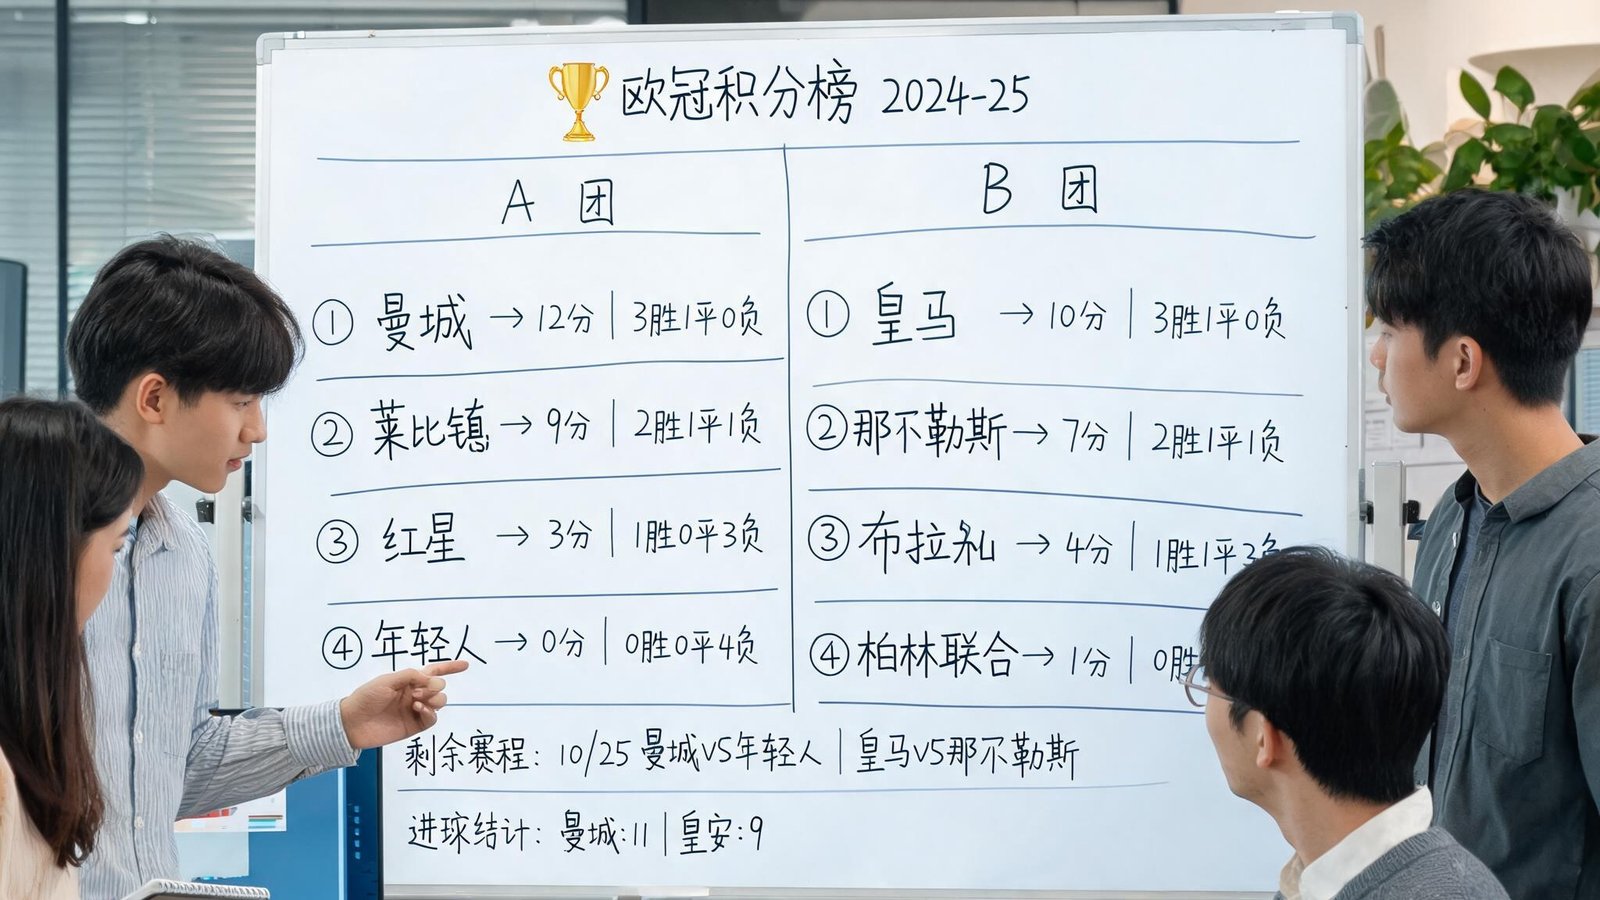 欧冠积分榜 2024-25
A 团
① 曼城 → 12分 | 3胜1平0负
② 莱比镇 → 9分 | 2胜1平1负
③ 红星 → 3分 | 1胜0平3负
④ 年轻人 → 0分 | 0胜0平4负
B 团
① 皇马 → 10分 | 3胜1平0负
② 那不勒斯 → 7分 | 2胜1平1负
③ 布拉 → 4分 | 1胜1平
④ 柏林联合 → 1分 | 0胜
剩余赛程: 10/25 曼城VS年轻人 | 皇马VS那不勒斯
进球结计: 曼城:11 | 皇安:9